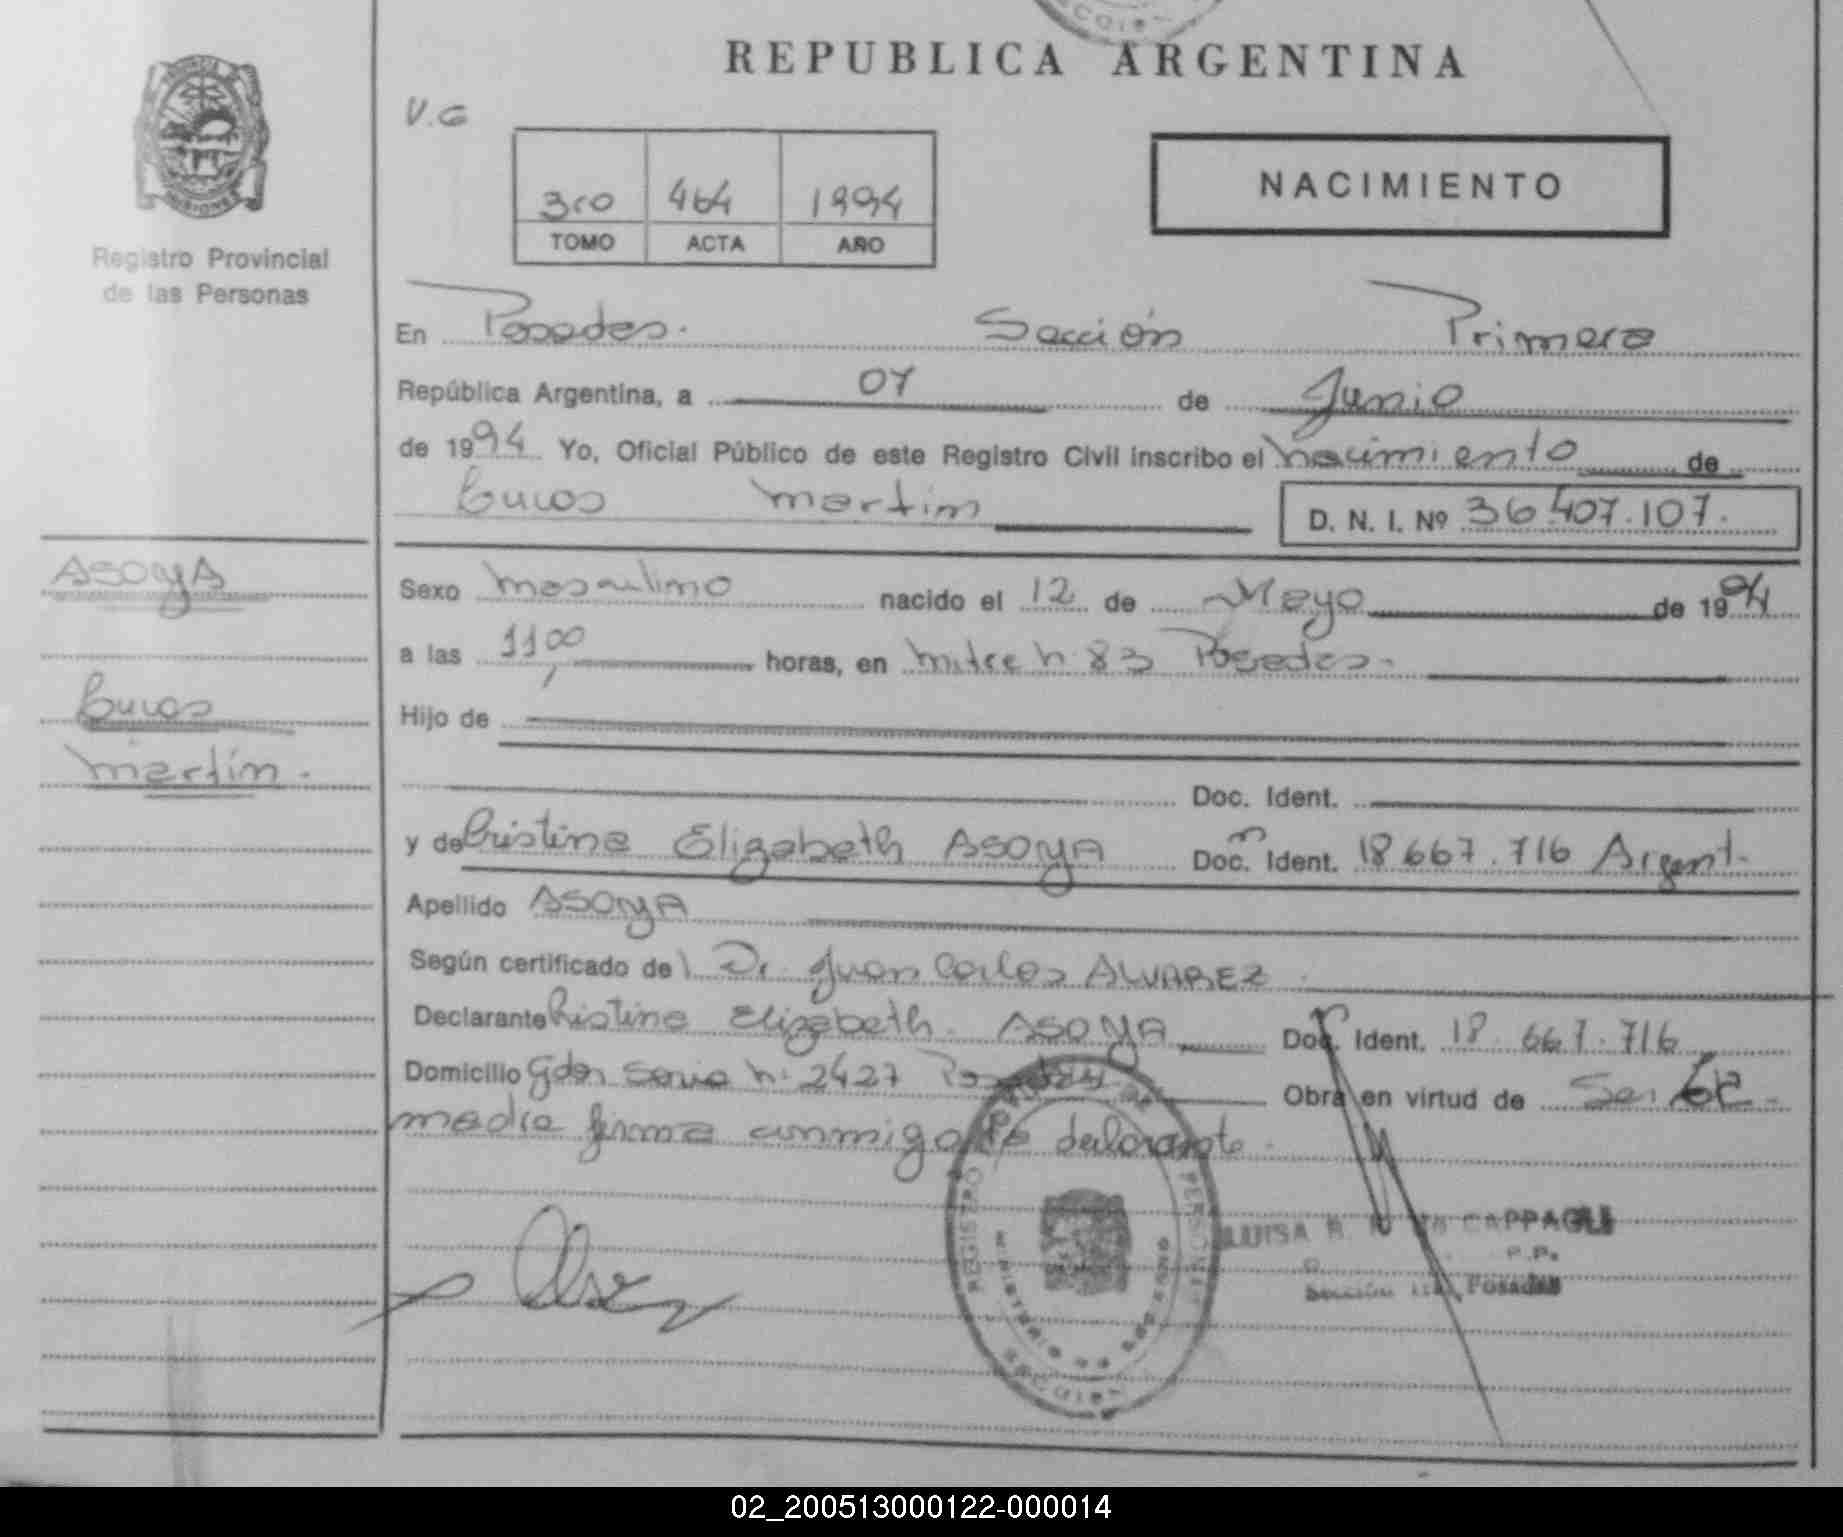 REPUBLICA ARGENTINA
V.G
3ro 464 1994
TOMO ACTA AÑO
NACIMIENTO
Registro Provincial
de las Personas
En Posadas. Sección Primera
República Argentina, a 07 de Junio
de 1994 Yo, Oficial Público de este Registro Civil inscribo el nacimiento de
Lucas Martin D. N. I. Nº 36.407.107.
ASOYA
Lucas
Martín.
Sexo Masculino nacido el 12 de Mayo de 1994
a las 11,00 horas, en Mitre n. 83 Posadas.
Hijo de
Doc. Ident.
y de Cristina Elizabeth ASOYA Doc. Ident. 18.667.716 Argent.
Apellido ASOYA
Según certificado de Dr. Juan Carlos ALVAREZ
Declarante Cristina Elizabeth. ASOYA Doc. Ident. 18.667.716
Domicilio n. 2427 Posadas Obra en virtud de
madre firma conmigo la declarante.
REGISTRO PERSONAS
MINISTERIO DE GOBIERNO
LUISA CAPPAGLI
Sección 1ra. Posadas
02_200513000122-000014